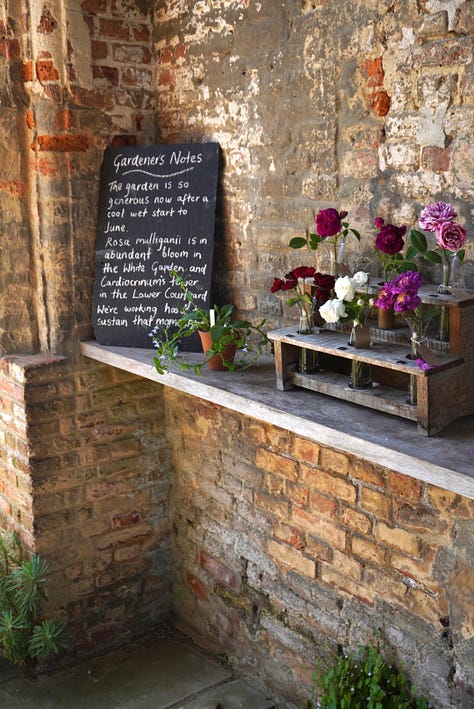 Gardeners Notes
The garden is so
generous now after a
cool wet start to
June.
Rosa mulliganii is in
abundant bloom in
the White Garden and
Cardiocrinum's
in the Lower Courtyard
We're working
sustain that